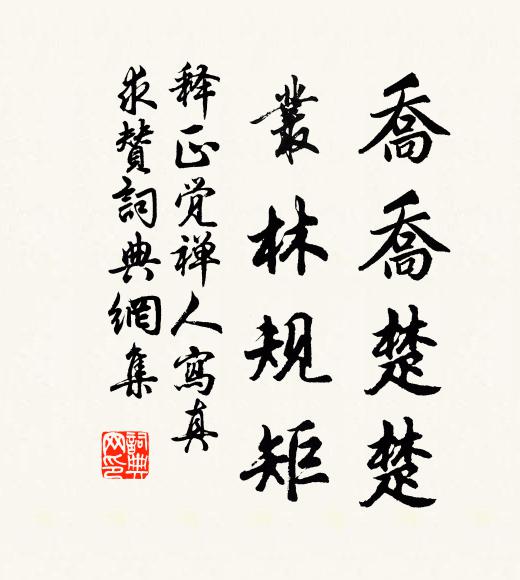 喬喬楚楚
叢林規矩
释正觉禅人寫真
求贊詞典網集
詞典
网印